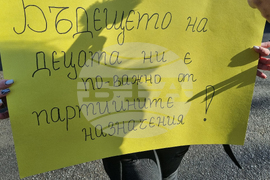 БЪДЕЩЕТО НА
ДЕЦАТА НИ Е
ПО-ВАЖНО ОТ
ПАРТИЙНИТЕ
НАЗНАЧЕНИЯ !